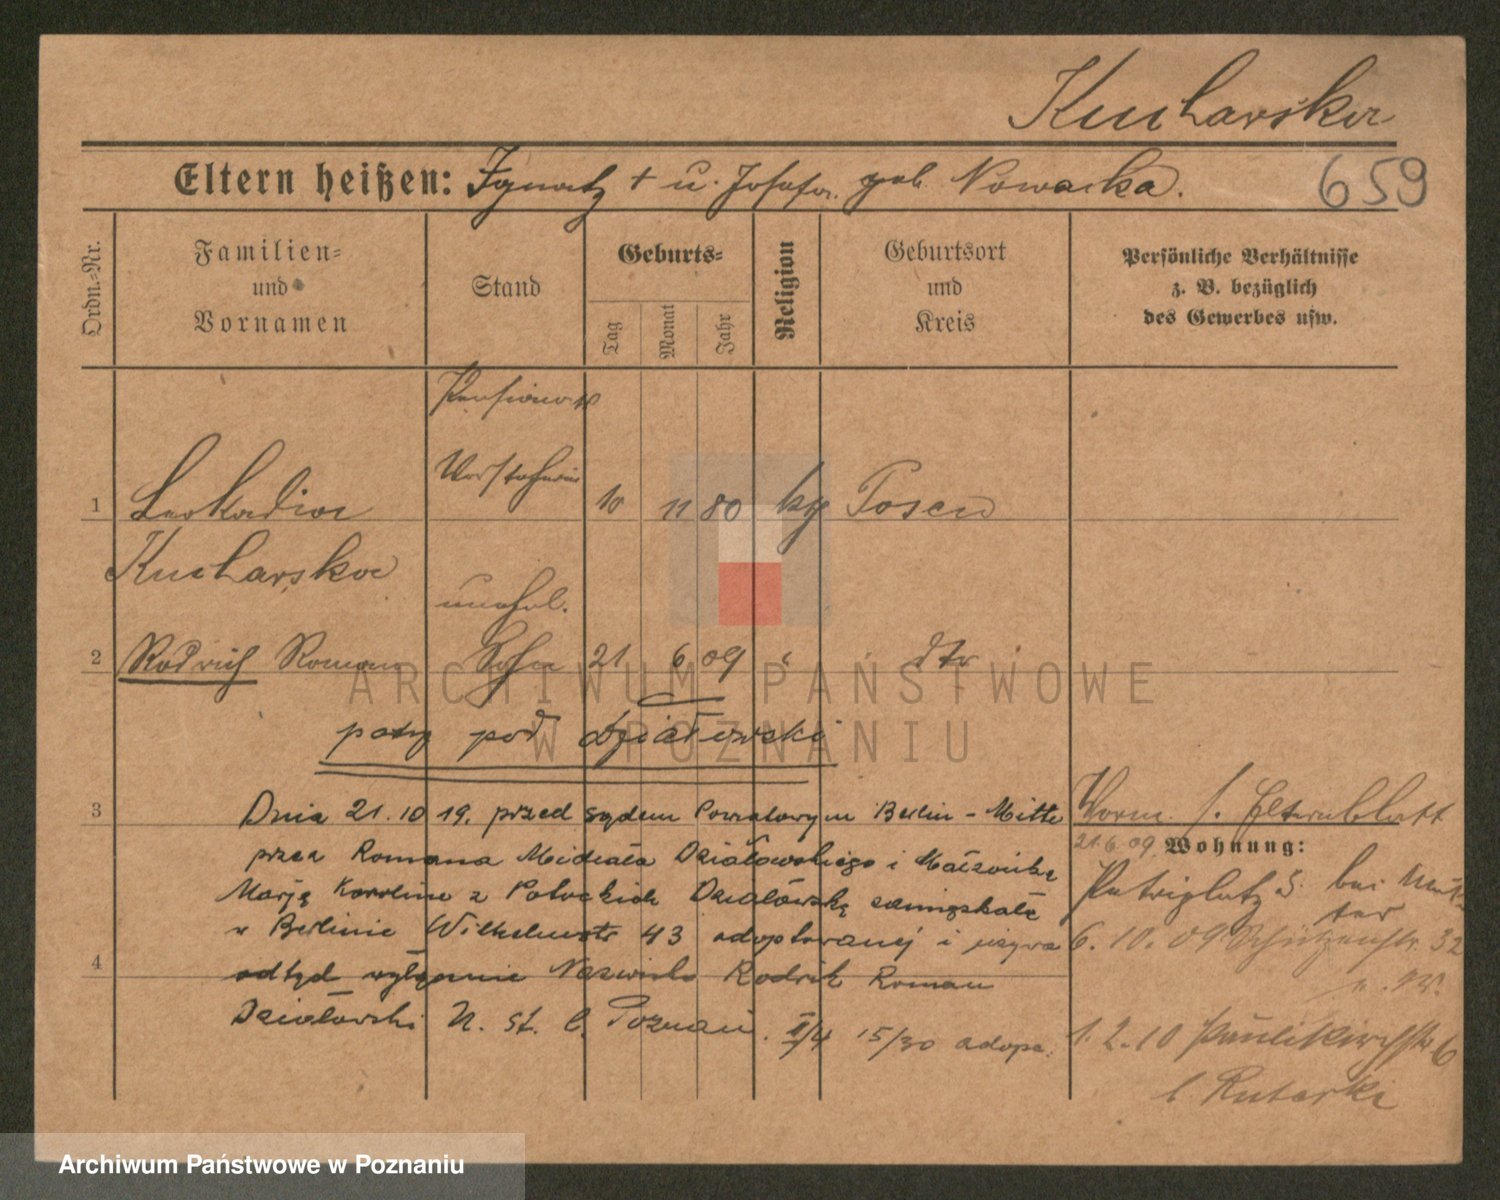 Kucharska
Eltern heißen: Ignatz + u. Josefa geb. Nowacka.
659
Ordn.-Nr.
Familien-
und
Vornamen
Stand
Geburts-
Tag
Monat
Jahr
Religion
Geburtsort
und
Kreis
Persönliche Verhältnisse
z. B. bezüglich
des Gewerbes usw.
Pensionats
Vorsteherin
1 Leokadia 10 11 80 kg Posen
Kucharska
unehel.
2 Rodrich Roman Sohn 21 6 09 " dto
patrz pod Działowski
3 Dnia 21.10 19. przed sądem Powiatowym Berlin - Mitte
przez Romana Michała Działowskiego i Małżonkę
Marję Karolinę z Potockich Działowską zamieszkałe
w Berlinie Wilhelmstr 43 adoptowanej i używa
4 odtąd wyłącznie Nazwiska Rodrik Roman
Działowski U. St. C. Poznań. II/4 15/30 adopc.
Vorm. s. Elternblatt
21.6.09. Wohnung:
Petriplatz 5. bei Mut-
ter
6. 10. 09 Schützenstr. 32
1. 2. 10 Paulikirchstr 6
b Rutarki
ARCHIWUM PAŃSTWOWE
W POZNANIU
Archiwum Państwowe w Poznaniu